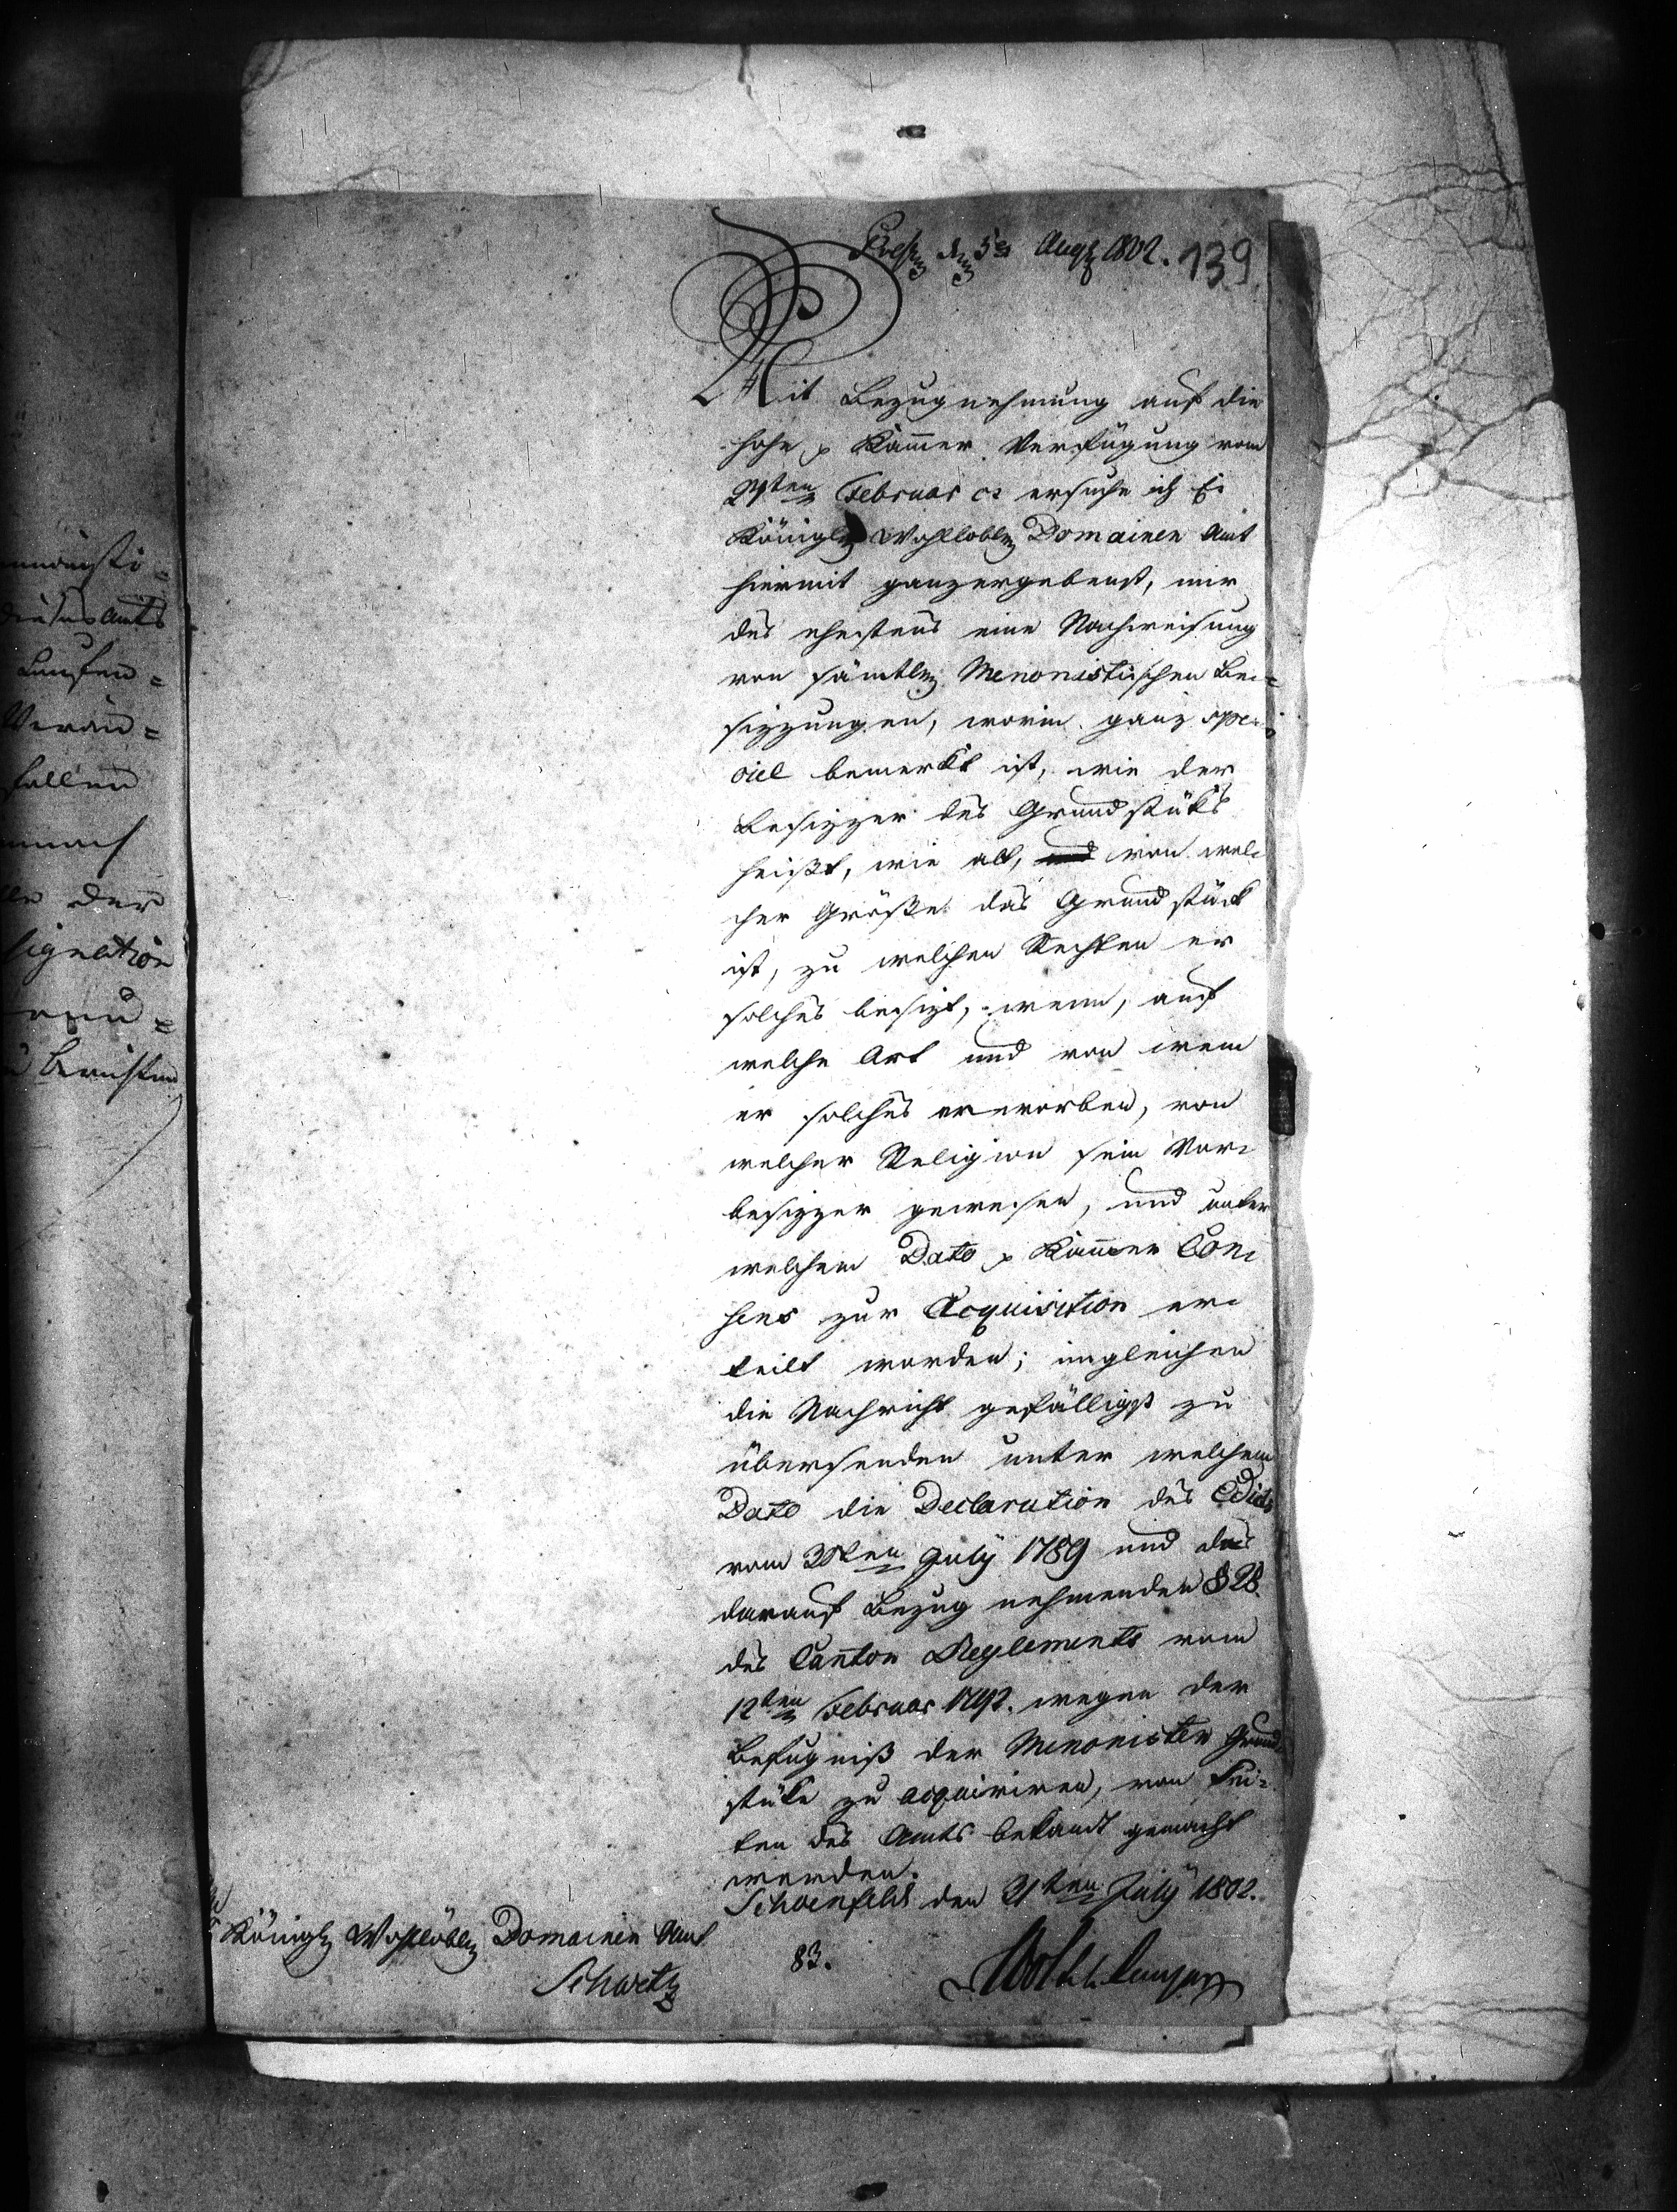 monisti-
dieses Amts
Verän=
fallen
der
signation
Presm den 5ten Augst 1802.
139
Mit Bezugnehmung auf die
hohe p Kammer Verfügung vom
24ten Februar cr ersuche ich Ei
Königln Wohllobln Domainen Amt
hiermit ganzergebenst, mir
des ehestens eine Nachweisung
von sämtln Menonistischen Be=
sizzungen, worin ganz spe-
ciel bemerkt ist, wie der
Besizzer des Grundstüks
heißt, wie alt, von wel-
cher Größe das Grundstück
ist, zu welchen Rechten er
solches besizt, wenn, auf
welche Art und von wem
er solches erworben, von
welcher Religion sein Vor-
besizzer gewesen, und unter
welchem Dato p Kammer Con-
sens zur Acquisition er-
teilt worden; imgleichen
die Nachricht gefälligst zu
übersenden unter welchem
Dato die Declaration des Edicts
vom 30ten July 1789 und des
darauf Bezug nehmenden § 28
des Canton Reglements vom
12ten Februar 1792. wegen der
Befugniß der Menonisten Grund
stüke zu acquiriren, von Sei=
ten des Amts bekandt gemacht
worden.
Schoenfeld den 31ten July 1802.
Königln Wohllöbln Domainen Amt
83.